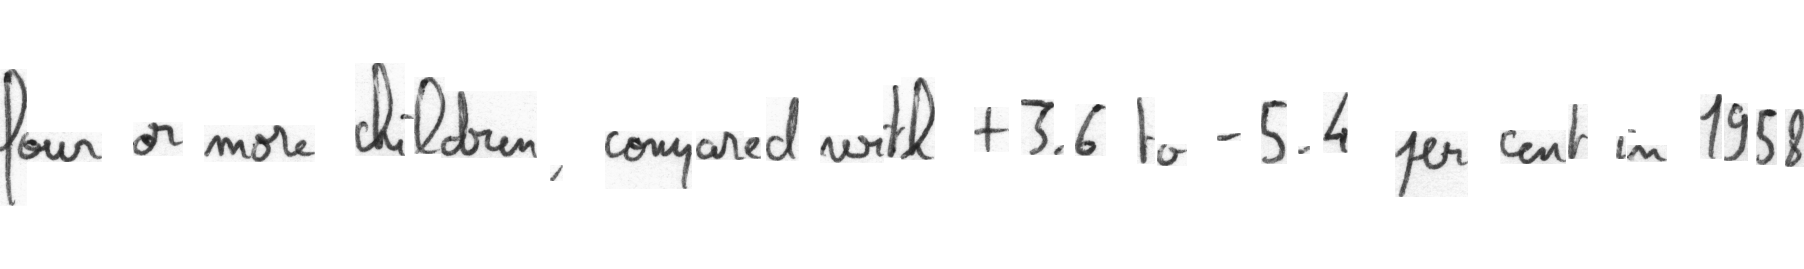 four or more children, compared with +3.6 to -5.4 per cent in 1958